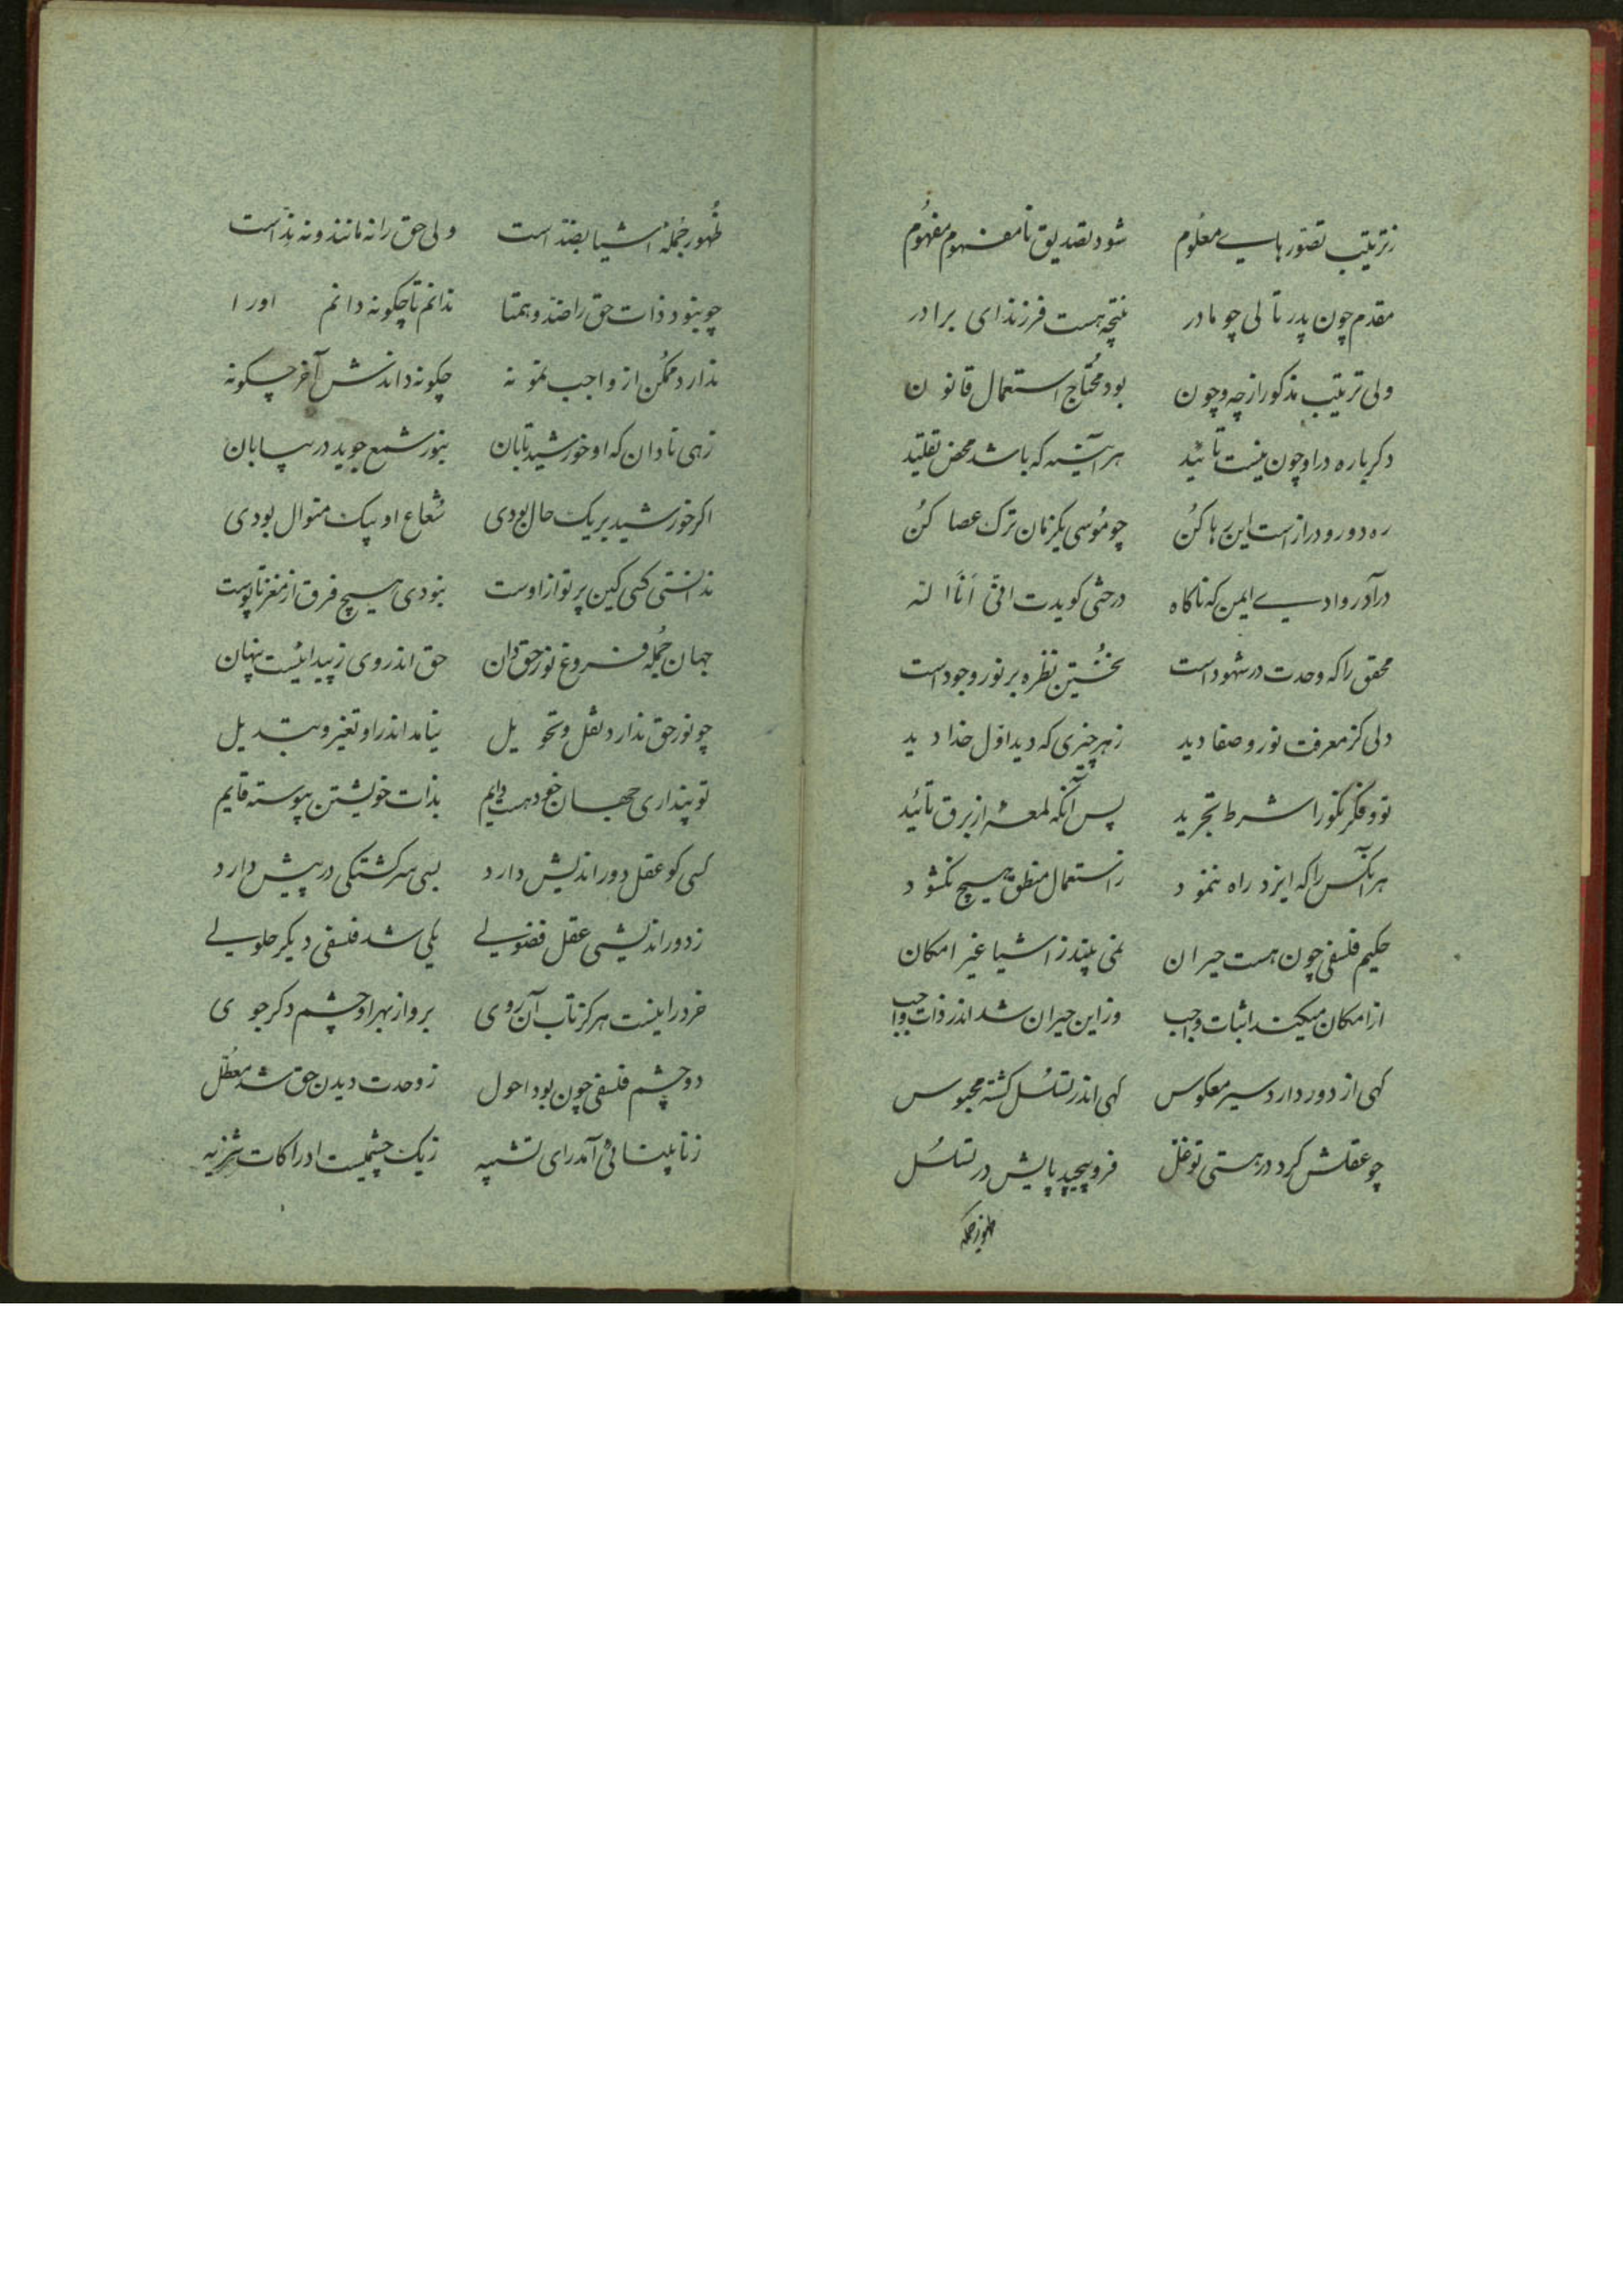 زترتیب تصورهایے معلوم شود تصدیق نامفهوم مفهوم
مقدم چون پدر تالی چو مادر نتیجه هست فرزند ای برادر
ولی ترتیب مذکور از چه و چون بود محتاج استعمال قانون
دکر باره در او چون نیست تائید هر آئینه که باشد محض تقلید
ره دور و دراز است این رها کن چو موسی یکزمان ترک عصا کن
درآ در وادیے ایمن که ناکاه درختی کویدت انی انا الله
محقق را که وحدت در شهود است نخستین نظره بر نور وجود است
دلی کز معرفت نور و صفا دید زهر چیزی که دید اول خدا دید
بود فکر نکو را شرط تجرید پس آنکه لمعهٔ از برق تائید
هر آنکس را که ایزد راه ننمود ز استعمال منطق هیچ نکشود
حکیم فلسفی چون هست حیران نمی بیند ز اشیا غیر امکان
از امکان میکند اثبات واجب وز این حیران شد اندر ذات واجب
کهی از دور دارد سیر معکوس کهی اندر تسلسل کشته محبوس
چو عقلش کرد در هستی توغل فرو پیچید پایش در تسلسل
ظهور جمله
ظهور جملهٔ اشیا بضد است ولی حق را نه مانند و نه ند است
چو نبود ذات حق را ضد و همتا ندانم تا چکونه دانم اورا
ندارد ممکن از واجب نمونه چکونه داندش آخر چکونه
زهی نادان که او خورشید تابان بنور شمع جوید در بیابان
اکر خورشید بر یک حال بودی شعاع او بیک منوال بودی
ندانستی کسی کین پرتو از اوست نبودی هیچ فرق از مغز تا پوست
جهان جمله فروغ نور حق دان حق اندر وی ز پیدائیست پنهان
چو نور حق ندارد نقل و تحویل نیامد اندر او تغیر و تبدیل
تو پنداری جهان خود هست دایم بذات خویشتن پیوسته قایم
کسی کو عقل دور اندیش دارد بسی سرکشتکی در پیش دارد
ز دور اندیشی عقل فضولے یکی شد فلسفی دیکر حلولے
خرد را نیست هرکز تاب آن روی برو از بهر او چشم دکر جوی
دو چشم فلسفی چون بود احول ز وحدت دیدن حق شد معطل
ز نابینائی آمد رای تشبیه ز یک چشمیست ادراکات تنزیه